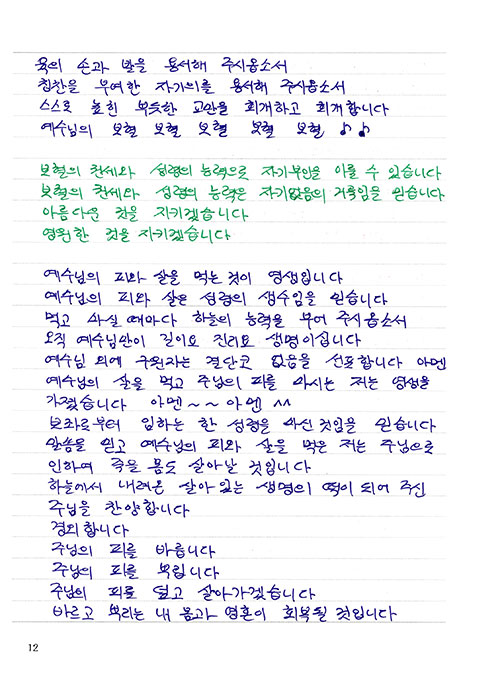 육의 손과 발을 용서해 주시옵소서
칭찬을 부여한 자기의를 용서해 주시옵소서
스스로 높힌 뿌듯한 교만을 회개하고 회개합니다
예수님의 보혈 보혈 보혈 보혈 보혈 ♪ ♪
보혈의 찬세와 성령의 능력으로 자기부인을 이룰 수 있습니다
보혈의 찬세와 성령의 능력은 자기없음의 거룩임을 믿습니다
아름다운 것을 지키겠습니다
영원한 것을 지키겠습니다
예수님의 피와 살을 먹는것이 영생입니다
예수님의 피와 살은 성령의 생수임을 믿습니다
먹고 마실 때마다 하늘의 능력을 부어 주시옵소서
오직 예수님만이 길이요 진리요 생명이십니다
예수님 외에 구원자는 결단코 없음을 선포합니다 아멘
예수님의 살을 먹고 주님의 피를 마시는 저는 영생을
가졌습니다 아멘~~아멘 ^^
보좌로부터 임하는 한 성령을 마신 것임을 믿습니다
말씀을 믿고 예수님의 피와 살을 먹은 저는 주님으로
인하여 죽을 몸도 살아날 것입니다
하늘에서 내려온 살아있는 생명의 떡이 되어 주신
주님을 찬양합니다
경외합니다
주님의 피를 바릅니다
주님의 피를 뿌립니다
주님의 피를 덮고 살아가겠습니다
바르고 뿌리는 내 몸과 영혼이 회복될 것입니다
12